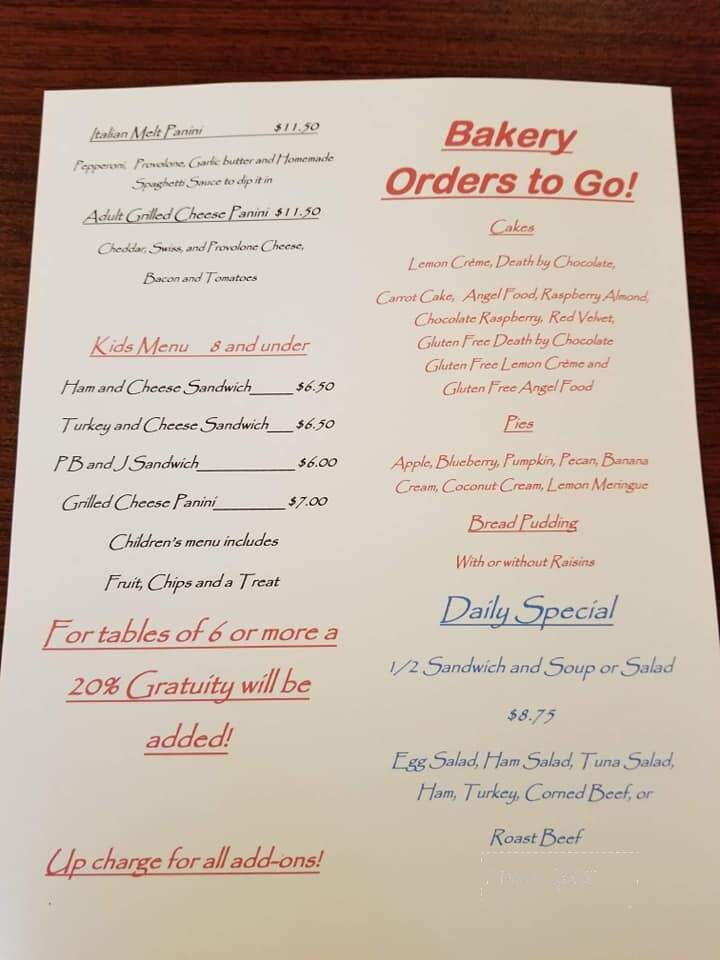 Italian Melt Panini $11.50
Pepperoni, Provolone, Garlic butter and Homemade
Spaghetti Sauce to dip it in
Adult Grilled Cheese Panini $11.50
Cheddar, Swiss, and Provolone Cheese,
Bacon and Tomatoes
Kids Menu 8 and under
Ham and Cheese Sandwich_____ $6.50
Turkey and Cheese Sandwich___ $6.50
P B and J Sandwich___________ $6.00
Grilled Cheese Panini________ $7.00
Children's menu includes
Fruit, Chips and a Treat
For tables of 6 or more a
20% Gratuity will be
added!
Up charge for all add-ons!
Bakery
Orders to Go!
Cakes
Lemon Crème, Death by Chocolate,
Carrot Cake, Angel Food, Raspberry Almond,
Chocolate Raspberry, Red Velvet,
Gluten Free Death by Chocolate
Gluten Free Lemon Crème and
Gluten Free Angel Food
Pies
Apple, Blueberry, Pumpkin, Pecan, Banana
Cream, Coconut Cream, Lemon Meringue
Bread Pudding
With or without Raisins
Daily Special
1/2 Sandwich and Soup or Salad
$8.75
Egg Salad, Ham Salad, Tuna Salad,
Ham, Turkey, Corned Beef, or
Roast Beef